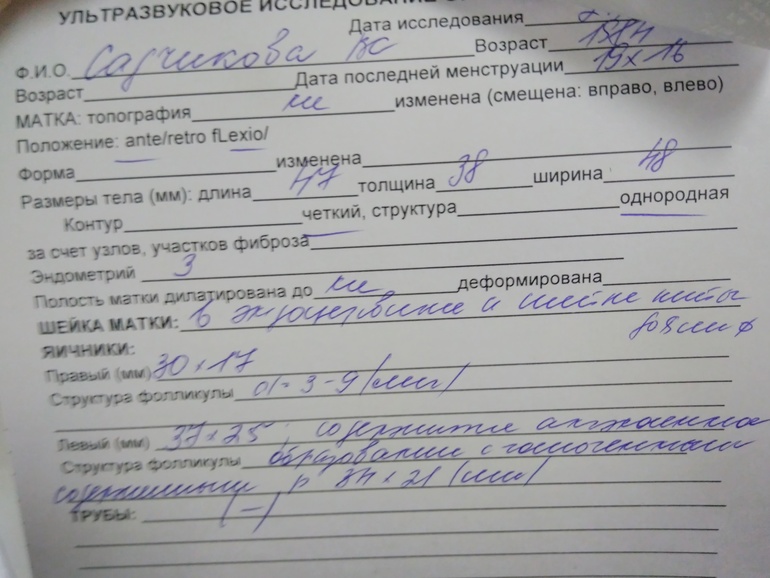 УЛЬТРАЗВУКОВОЕ ИССЛЕДОВАНИЕ
Дата исследования
Ф.И.О. Возраст
Возраст Дата последней менструации 19х16
МАТКА: топография не изменена (смещена: вправо, влево)
Положение: ante/retro fLexio/
Форма изменена
Размеры тела (мм): длина 47 толщина 38 ширина 48
Контур четкий, структура однородная
за счет узлов, участков фиброза
Эндометрий 3
Полость матки дилатирована до не деформирована
ШЕЙКА МАТКИ: в и шейке кисты
до 8 мм
ЯИЧНИКИ:
Правый (мм) 30х17
Структура фолликулы d= 3-9 (мм)
Левый (мм) 37х25; содержит
Структура фолликулы образование с гомогенным
содержимым р 34х21 (мм)
ТРУБЫ: (-)